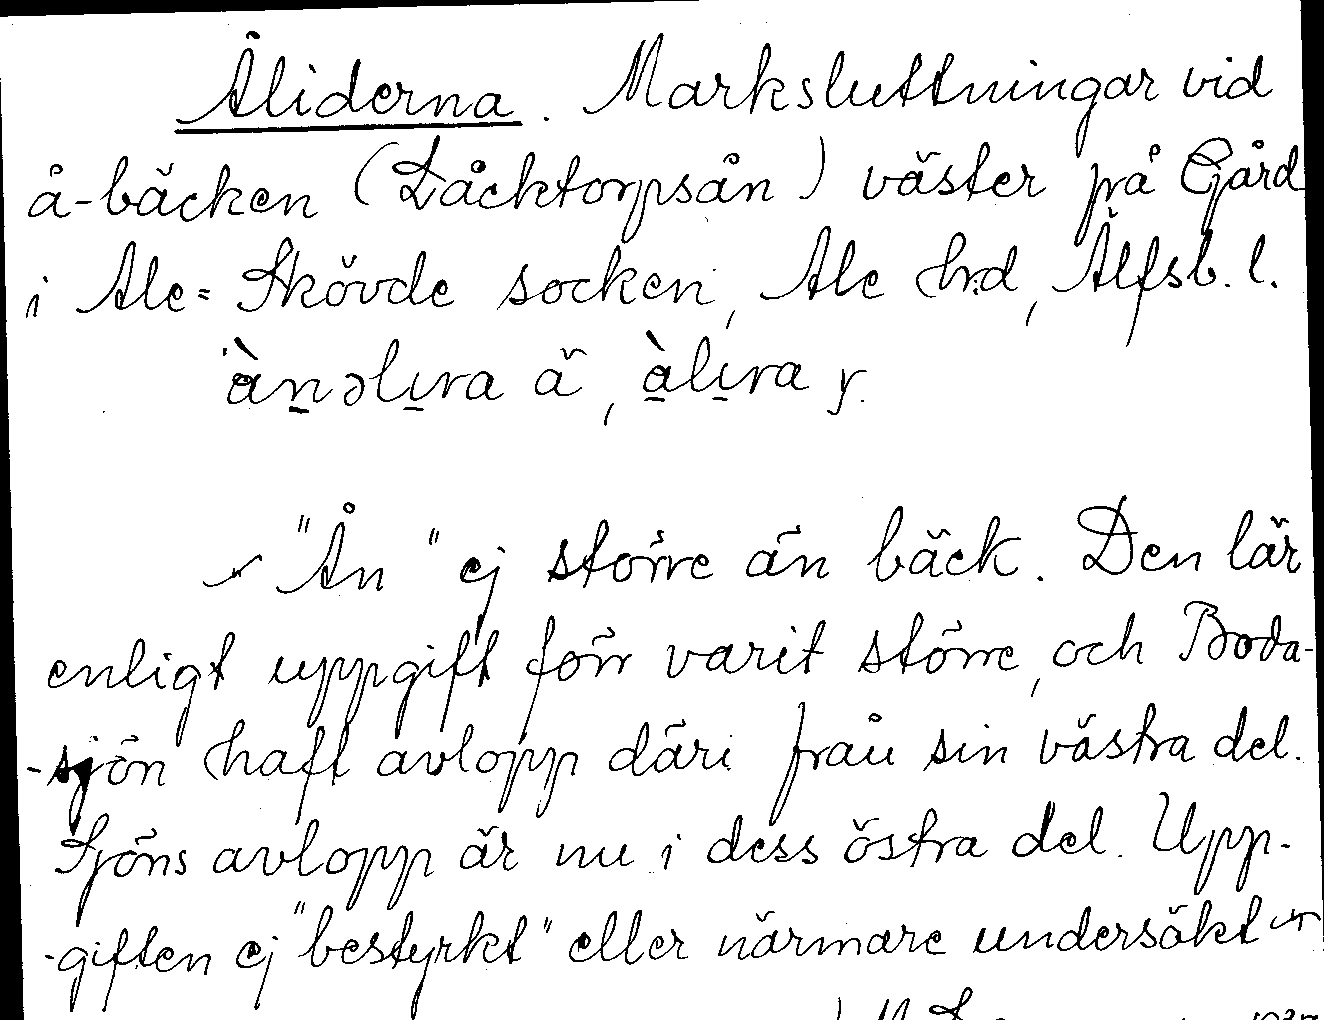 Åliderna. Marksluttningar vid
å-bäcken (Låcktorpsån) väster på Gård
i Ale=Skövde socken, Ale hrd, Älfsb. l.
ànəlıra ä, àlıra y.
"Ån" ej större än bäck. Den lär
enligt uppgift förr varit större, och Boda-
-sjön haft avlopp däri från sin västra del.
Sjöns avlopp är nu i dess östra del. Upp-
-giften ej "bestyrkt" eller närmare undersökt